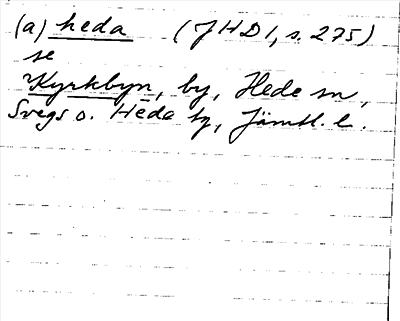 (a) heda (JHD 1, s. 275)
se
Kyrkbyn, by, Hede sn,
Svegs o. Hede tg, Jämtl. l.